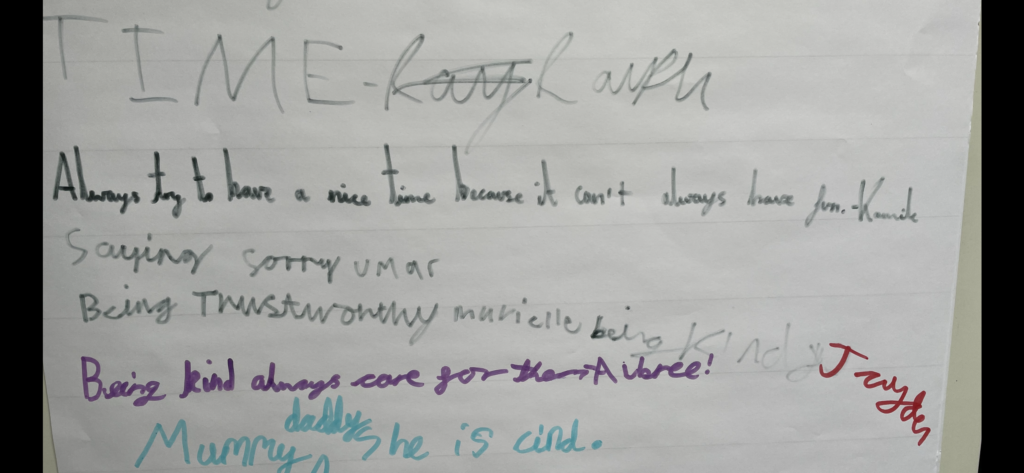 TIME - Raph
Always try to have a nice time because it can't always have fun. - Kamile
Saying sorry umar
Being Trustworthy murielle being Kind Jrayden
Being kind always care for them - Aubree!
Mummy daddy she is cind.